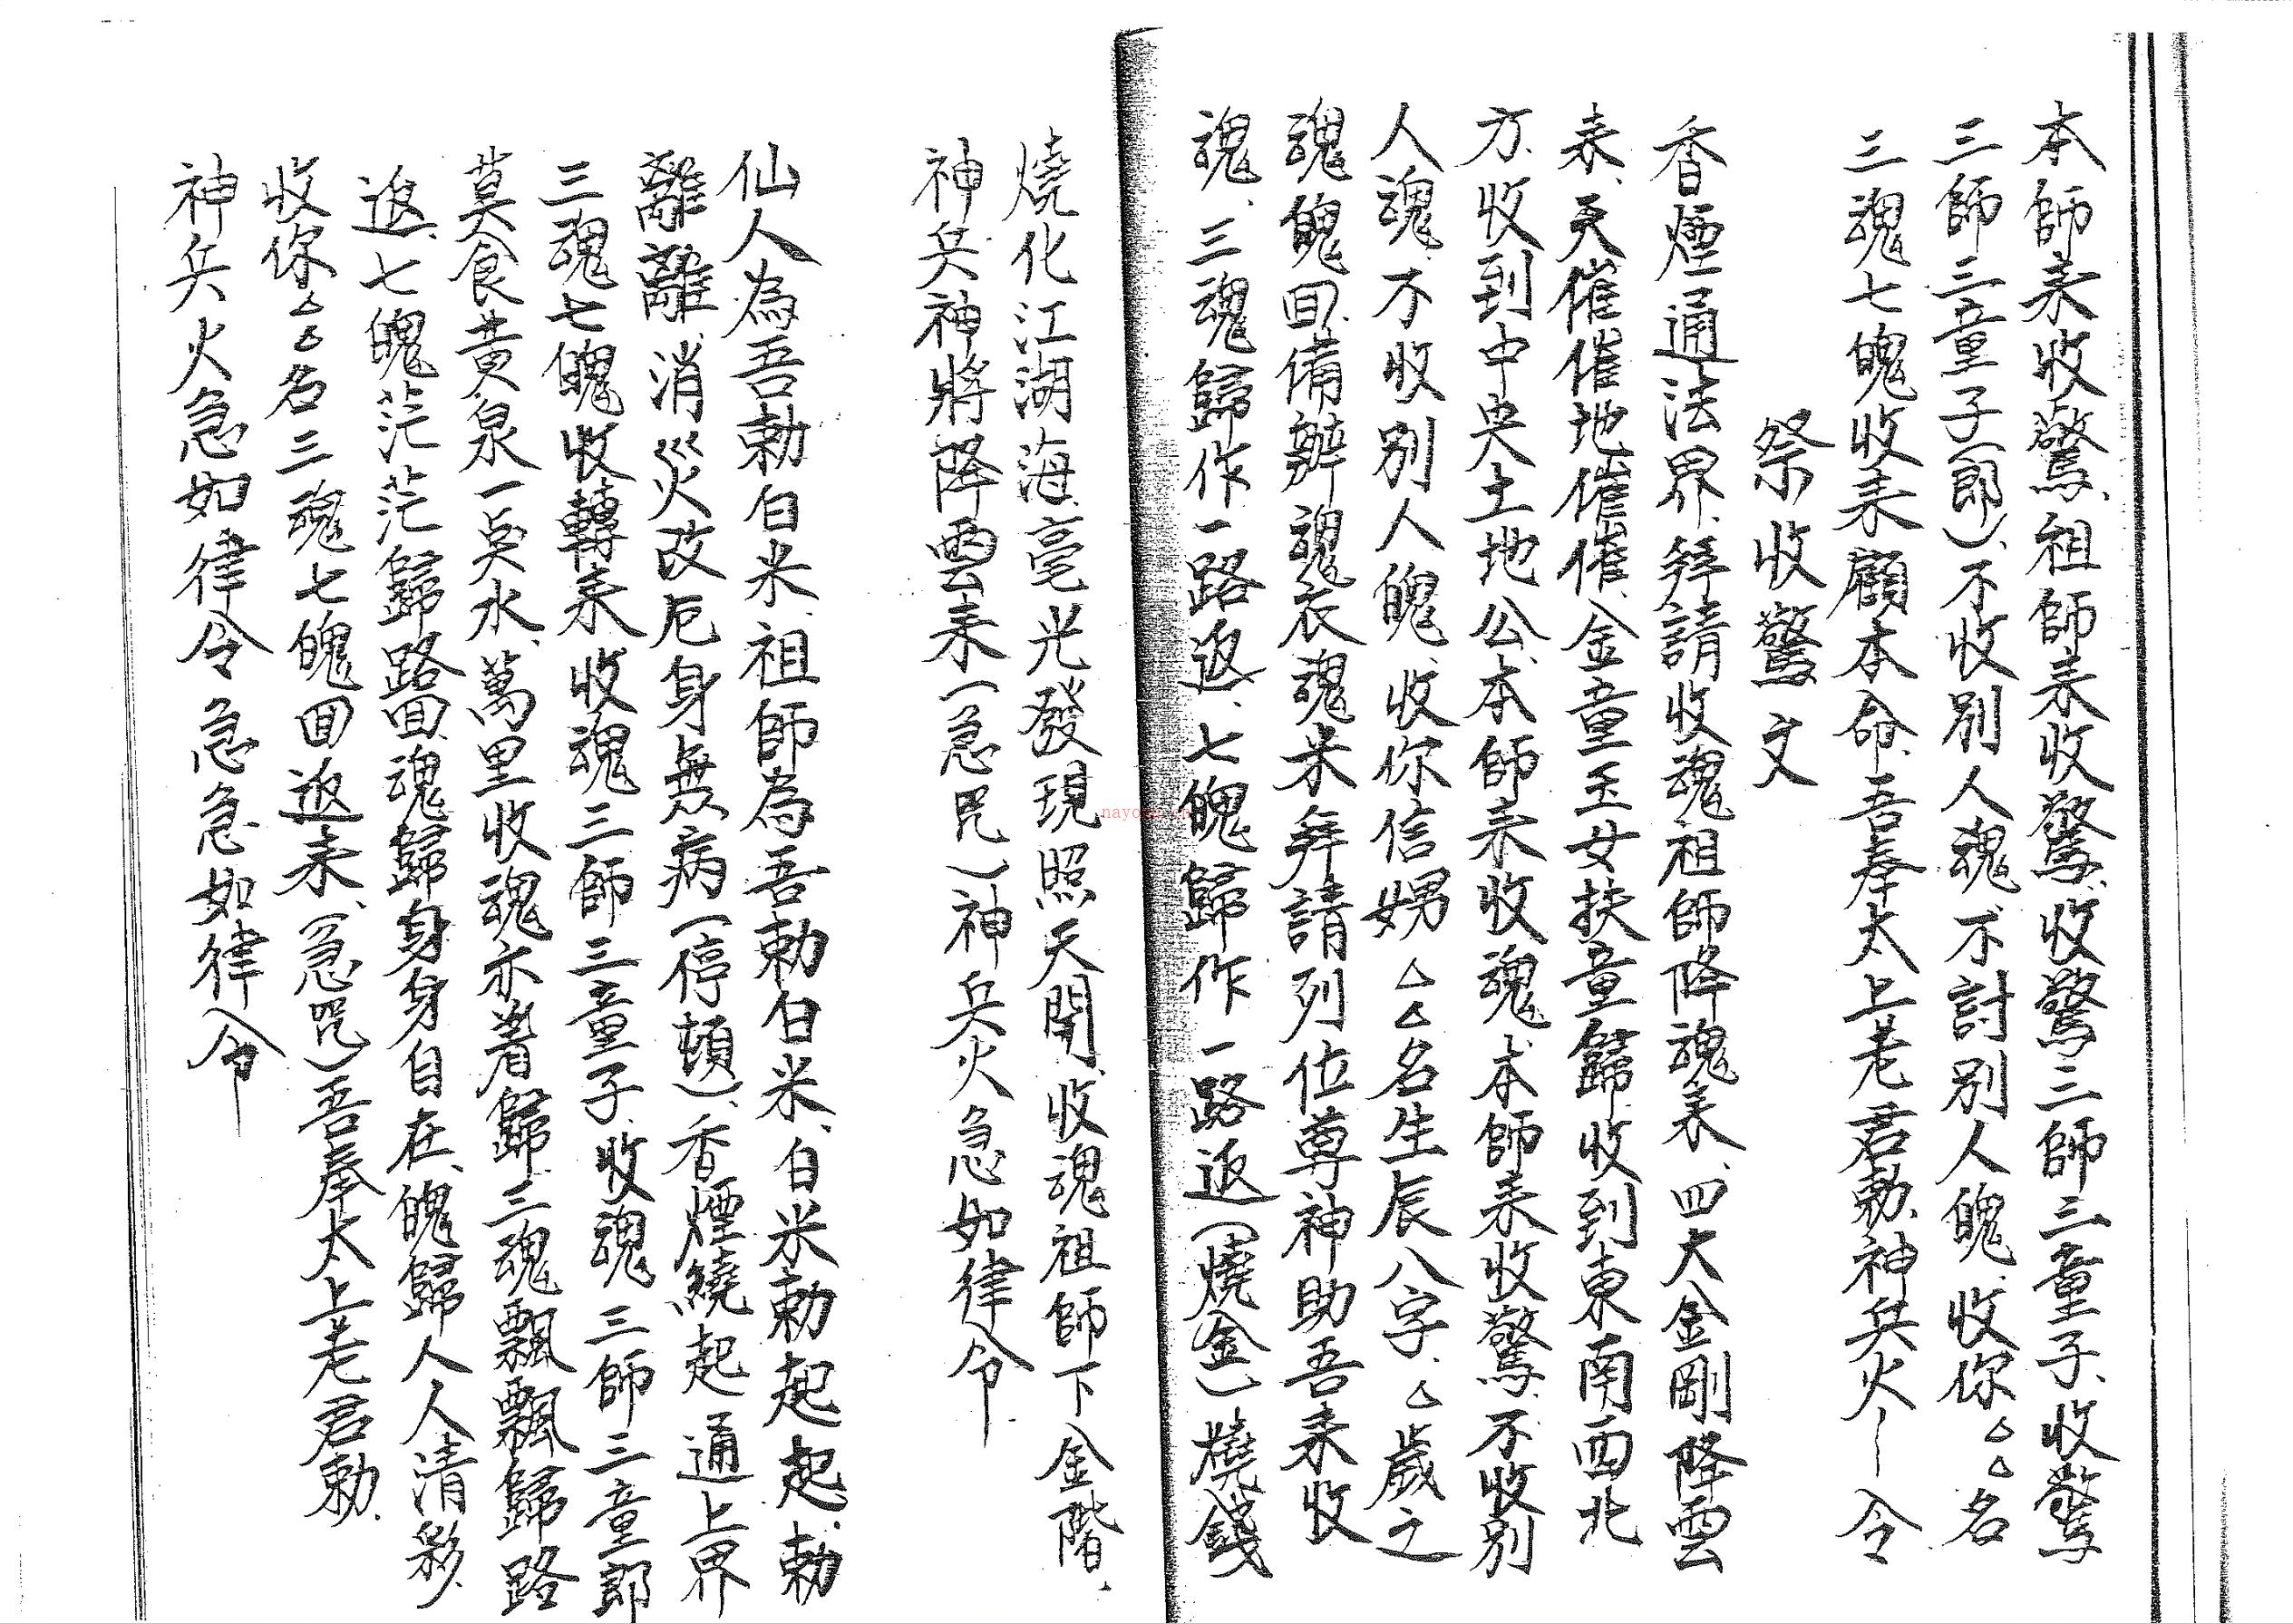 本師来收驚、祖師来收驚、收驚三師三童子、收驚
三師三童子（郎）、不收別人魂、不討別人魄、收你、△△名
三魂七魄收来顧本命、吾奉太上老君勅、神兵火〻令
祭收驚文
香煙通法界、拜請收魂祖師降魂来、四大金剛降雲
来、天催催地催催、金童玉女扶童歸、收到東南西北
方、收到中央土地公、本師来收魂、本師来收驚、不收別
人魂、不收別人魄、收你信娚△△名生辰八字、△歲之
魂魄回、備辦魂衣魂米拜請列位尊神助吾来收
魂、三魂歸作一路返、七魄歸作一路返（燒金）燒錢
燒化江湖海、毫光發現照天開、收魂祖師下金階、
神兵神將降雲来（急咒）神兵火急如律令
仙人為吾勅白米、祖師為吾勅白米、白米勅起起、勅
離離、消災改厄身無病（停頓）、香煙繞起通上界
三魂七魄收轉来、收魂三師三童子、收魂三師三童郎
莫食黃泉一吳水、萬里收魂亦着歸、三魂飄飄歸路
返、七魄茫茫歸路回、魂歸身身自在、魄歸人人清彩、
收你△△名三魂七魄回返来、（急咒）吾奉太上老君勅、
神兵火急如律令急急如律令
nayo